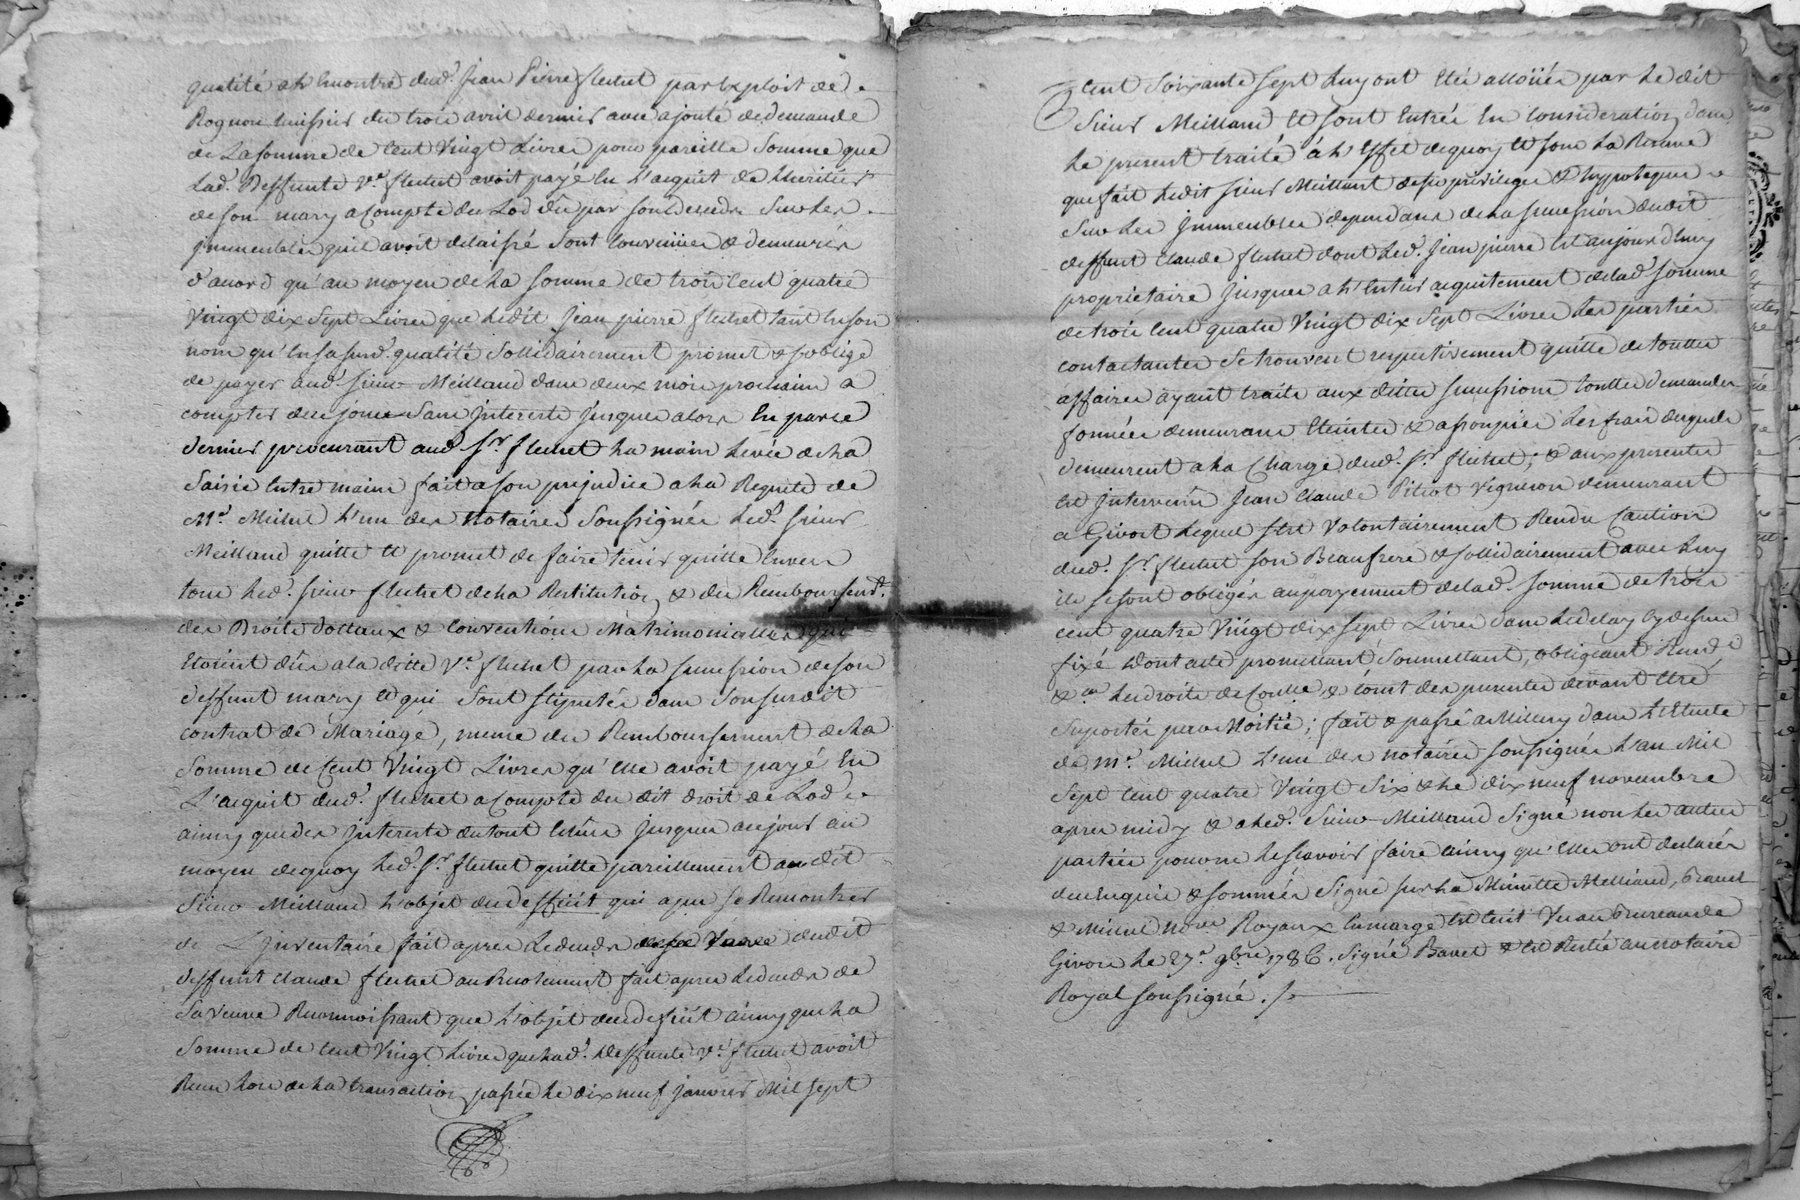 qualité à l'encontre dud. Jean Pierre fluchet par Exploit de
Rognon huissier du trois avril dernier avec ajouté de demande
de La somme de Cent Vingt Livres pour pareille Somme que
lad. Deffunte Ve. fluchet avoit payé En L'acquit de l'heritier
de son mary acompte du Lod dû par son déceds Sur les
immeubles qu'il avoit delaissé sont Convenües & demeurés
d'acord qu'au moyen de la somme de trois Cent quatre
Vingt dix Sept Livres que ledit Jean pierre fluchet tant En son
nom qu'En sa susd. qualité Sollidairement promet & s'oblige
de payer aud. sieur Meilland dans deux mois prochain a
compter de ce jour Sans Interests jusques alors En par ce
dernier procurant aud. Sr. fluchet la main Levée de la
Saisie Entre mains fait a son prejudice a la Requete de
Me. Michel L'un des Notaires Soussignés led. sieur
Meilland quitte Et promet de faire tenir quitte Envers
tous led. sieur fluchet de la Restitution & du Remboursemt.
des Droits dottaux & Conventions Matrimonialles qui
Etoient dûs a la ditte Ve. fluchet par la succession de son
deffunt mary Et qui Sont stipulés dans son susdit
contrat de Mariage, meme du Remboursement de la
Somme de Cent Vingt Livres qu'Elle avoit payé En
L'acquit dud. fluchet acompte du dit droit de Lod
ainsy que des Interests du tout Echus Jusques a ce jour au
moyen de quoy led. Sr. fluchet quitte pareillement au dit
Sieur Meilland L'objet du deffiút qui a pu se Remontrer
de L'Inventaire fait apres le deceds dudit
deffunt Claude fluchet au Recolement fait apres le deceds de
sa veuve Reconnoissant que L'objet du deficit ainsy que la
Somme de Cent Vingt Livres que lad. Deffunte Ve. fluchet avoit
Reçu Lors de la transaction passée le dix neuf janvier Mil sept
Cent Soixante sept luy ont Eté alloüés par le dit
Sieur Meilland Et sont Entrés En Consideration dans
le present traité à L'Effet de quoy Et sous La Reserve
que fait ledit sieur Meilland de ses privileges & hypoteques
Sur les Immeubles dependans de la succession dudit
deffunt Claude fluchet dont led. Jean pierre Est aujourd'huy
proprietaire Jusques a L'Entier acquitement de lad. somme
de trois Cent quatre Vingt dix Sept Livres les parties
contractantes Se trouvent respectivement quitte de touttes
affaires ayant traits aux dittes successions touttes demandes
formées demeurans Eteintes & assoupies les frais desquels
demeurent a la Charge dud. Sr. fluchet; & aux presentes
Est Intervenu Jean Claude Pitiot Vigneron demeurant
a Givors Lequel s'est Volontairement Rendu Caution
dud. Sr. fluchet son Beaufrere & sollidairement avec luy
ils se sont obligés au payement de lad. somme de trois
cent quatre Vingt dix sept Livres dans le delay cy dessus
fixé dont acte promettant, soumettant, obligeant Renon
&a. les droits de Controlle & cout des presentes devant Etre
Suportés par Moitié; fait & passé a Millery dans L'Etude
de Me. Michel L'un des notaires soussignés L'an Mil
Sept Cent quatre Vingt Six & le dix neuf novembre
apres midy & a led. Sieur Meilland Signé non les autres
parties pour ne le scavoir faire ainsy qu'Elles ont declarés
de ce Enquis & sommés Signé sur la Minutte Meilland, Bavet
& Michel nores Royaux En marge Est Ecrit Vu au Bureau de
Givors le 27e. 9bre 1786. Signé Bavet & Est Restée au notaire
Royal soussigné ./.